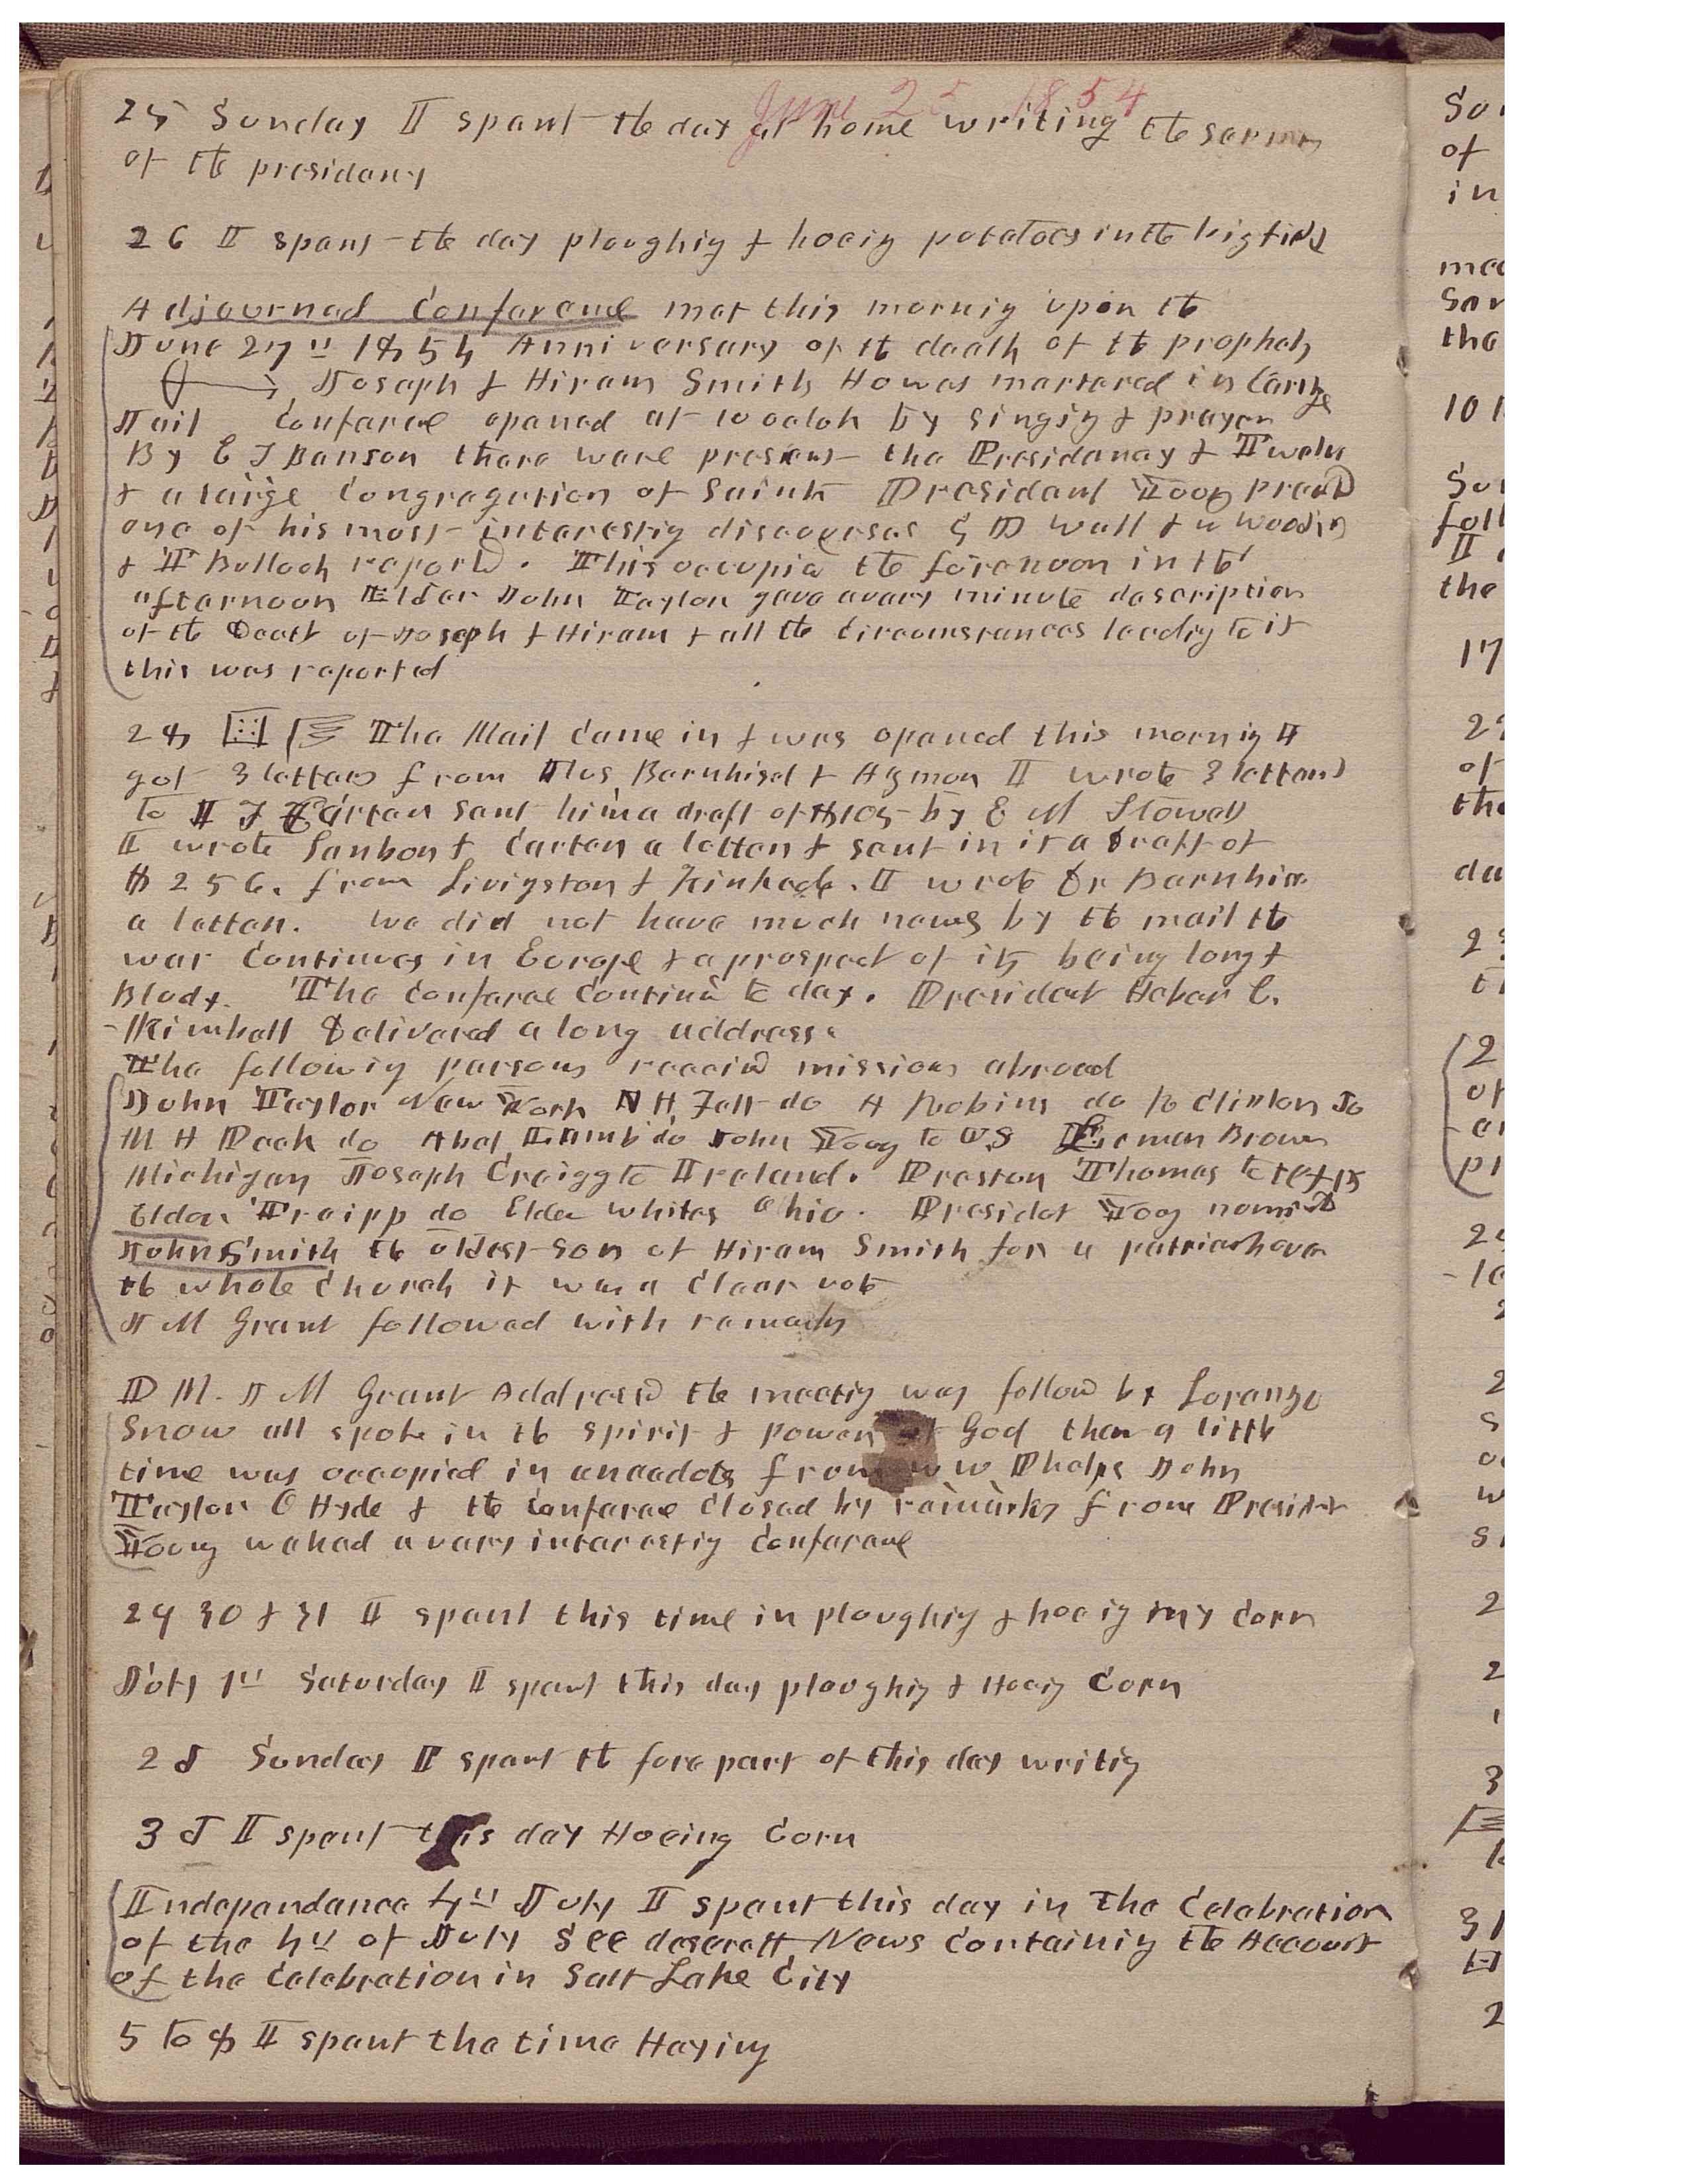 June 25 1854
25 Sunday I spent the day at home writing the sermon
of the presidency
26 I spent the day ploughig & hoeig potatoes in the big field
Adjourned Conferance met this mornig upon the
June 27th 1854 Anniversary of the death of the prophets
Joseph & Hiram Smith Ho was martered in Carthage
Jail Conferance opened at 10 oclok by singig & prayer
By E T Benson there were present the Presidency & Twelve
& a large Congregation of Saints President Young preached
one of his most interestig discourses G D Watt & W Woodruff
& T Bullock reported. This occupied the forenoon in the
afternoon Elder John Taylor gave a very minute description
of the Death of Joseph & Hiram & all the circumstances leadig to it
this was reported
28 The Mail came in & was opened this mornig I
got 3 letters from Ilus Bernhisel & Hyman I wrote 3 letters
to I F Carter sent him a draft of $105 by E M Stowell
I wrote Sanborn & Carter a letter & sent in it a draft of
$256. from Livigston & Kinkade. I wrote Dr Barnhisel
a letter. We did not have much news by the mail the
war continues in Europe & a prospect of its being long &
Blody. The Conferance continued to day. President Heber C.
Kimball Delivered a long address.
The followig persons received missions abroad
John Taylor New York N H Felt do A Robins do R Clinton do
M H Peck do Abel Lamb do John Young to US Leman Brown
Michigan Joseph Craigg to Ireland. Preston Thomas to Texas
Elder Traipp do Elder Whites Ohio. President Young nominated
John Smith the oldest Son of Hiram Smith for a patriarch over
the whole Church it was a clear vote
J M Grant followed with remarks
P M. J M Grant Addressed the meetig was follow by Loranzo
Snow all spoke in the spirit & power of God then a little
time was occupied in anecdotes from W W Phelps John
Taylor O Hyde & the Conferance closed by remarks from President
Young we had a very interestig Conferance
29 30 & 31 I spent this time in ploughig & hoeig my Corn
July 1st Saturday I spent this day ploughig & Hoeig Corn
2d Sunday I spent the fore part of this day writig
3d I spent this day Hoeing Corn
Independance 4th July I spent this day in The Celebration
of the 4th of July See deserett News containig the Account
of the Celebration in Salt Lake City
5 to 8 I spent the time Haying